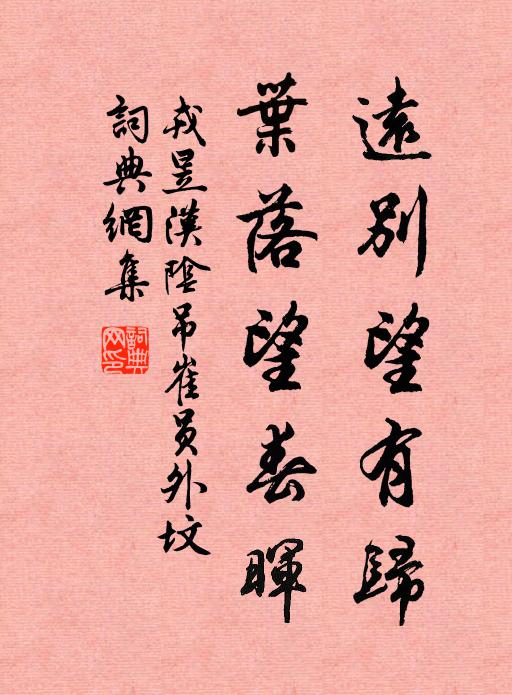 遠別望有歸
葉落望春暉
戎昱漢陰吊崔員外墳
詞典網集
詞典网印